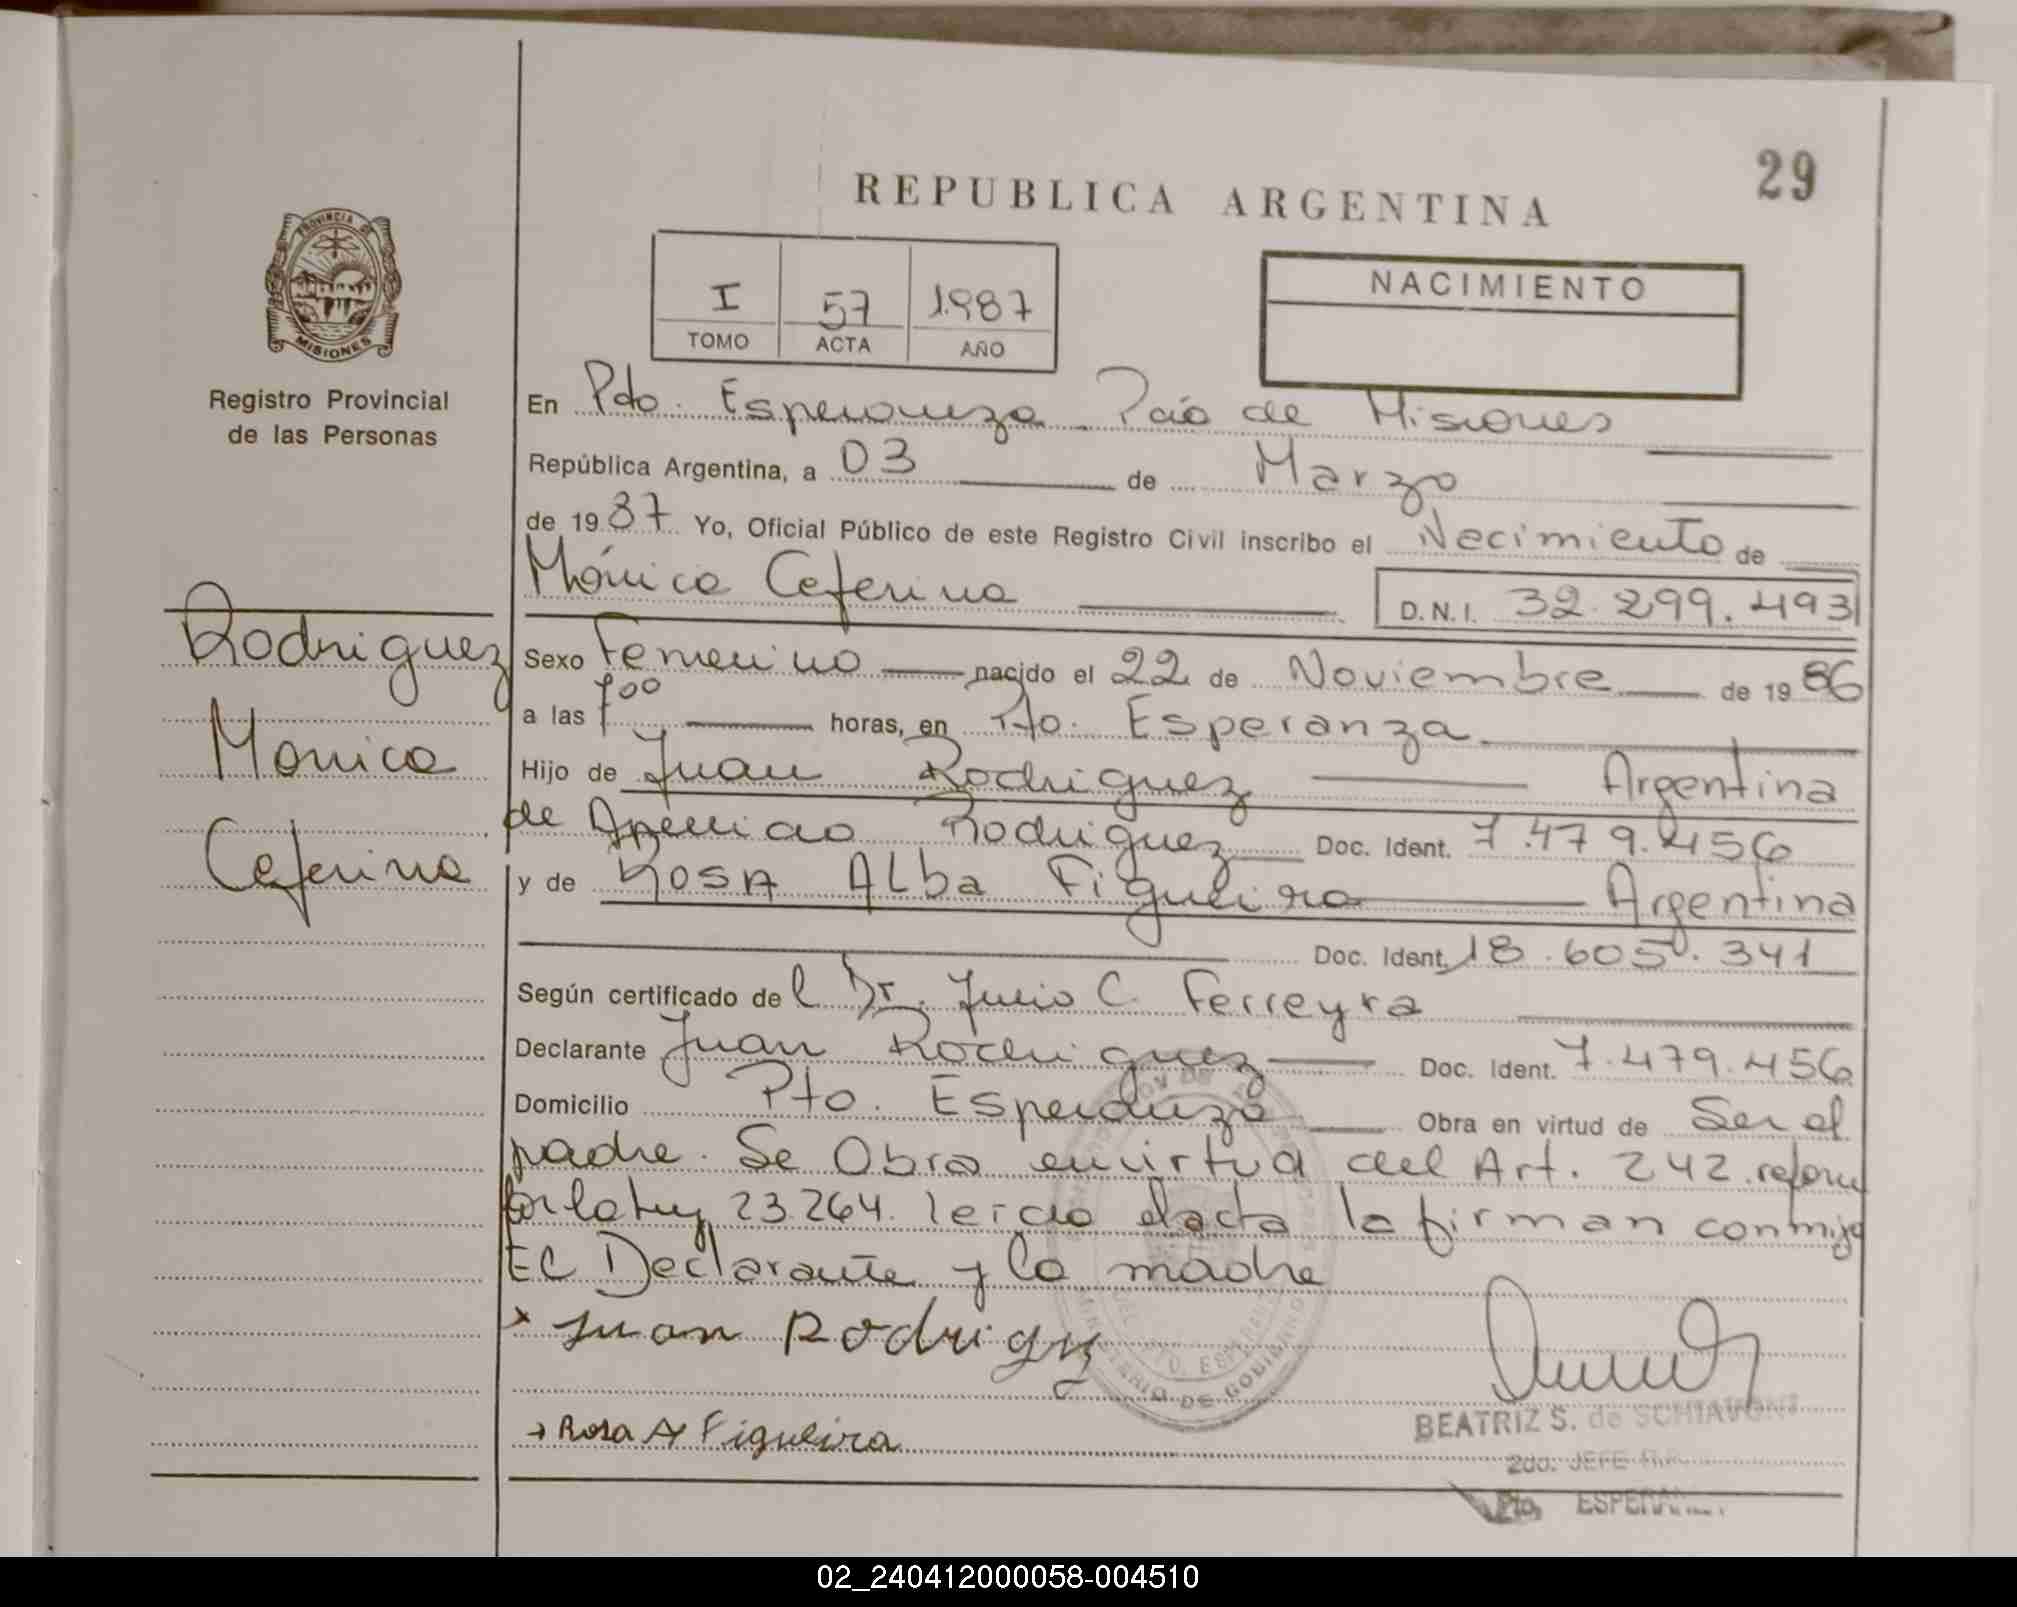 29
REPUBLICA ARGENTINA
PROVINCIA DE
MISIONES
Registro Provincial
de las Personas
I 57 1.987
TOMO ACTA AÑO
NACIMIENTO
En Pdo. Esperanza Pcia de Misiones
República Argentina, a 03 de Marzo
de 1987 Yo, Oficial Público de este Registro Civil inscribo el Nacimiento de
Mónica Ceferina D.N.I. 32.299.493
Rodriguez
Monica
Ceferina
Sexo Femenino nacido el 22 de Noviembre de 1986
a las 700 horas, en Pto. Esperanza
Hijo de Juan Rodriguez Argentina
de Rodriguez Doc. Ident. 7.479.456
y de ROSA ALba Figueira Argentina
Doc. Ident. 18.605.341
Según certificado del Dr. Julio C. Ferreyra
Declarante Juan Rodriguez Doc. Ident. 7.479.456
Domicilio Pto. Esperanza Obra en virtud de Ser el
padre. Se Obra en virtud del Art. 242 reform
por la ley 23.264. leida el acta la firman conmigo
El Declarante y la madre
x Juan Rodrigz
Rosa A Figueira
BEATRIZ S. de SCHIAVONI
2do. JEFE
Pto. ESPERANZA
MINISTERIO DE GOBIERNO
02_240412000058-004510